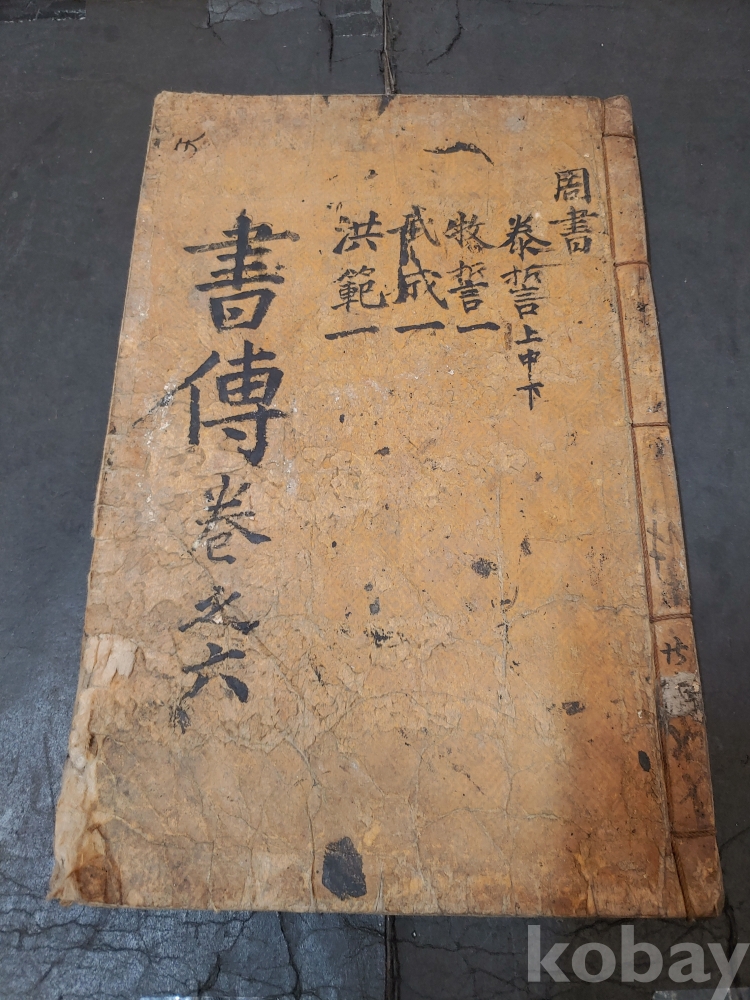 周書
泰誓上中下
牧誓一
武成一
洪範一
書傳卷之六
kobay